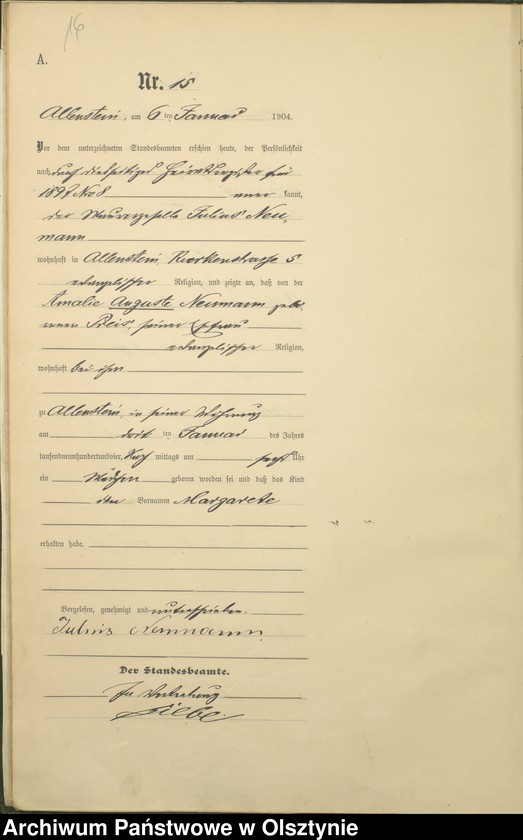 16
A.
Nr. 15
Allenstein, am 6 ten Januar 1904.
Vor dem unterzeichneten Standesbeamten erschien heute, der Persönlichkeit
nach durch diesseitiges Heirathsregister für
1897 No 8 aner kannt,
der Maurergeselle Julius Neu-
mann
wohnhaft in Allenstein,
evangelischer Religion, und zeigte an, daß von der
Amalie Auguste Neumann gebo-
renen Preis, seiner Ehefrau
evangelischer Religion,
wohnhaft bei ihm
zu Allenstein, in seiner Wohnung
am drit ten Januar des Jahres
tausendneunhundertundvier, Nach mittags um sechs Uhr
ein Mädchen geboren worden sei und daß das Kind
den Vornamen Margarete
erhalten habe.
Vorgelesen, genehmigt und unterschrieben.
Julius Neumann
Der Standesbeamte.
In Vertretung
Archiwum Państwowe w Olsztynie